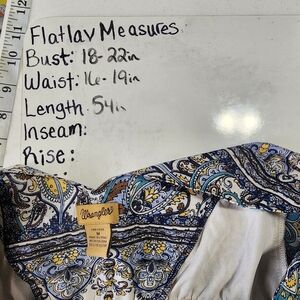 Flatlay Measures
Bust: 18-22in
Waist: 16-19in
Length: 54in
Inseam:
Rise:
Wrangler
M